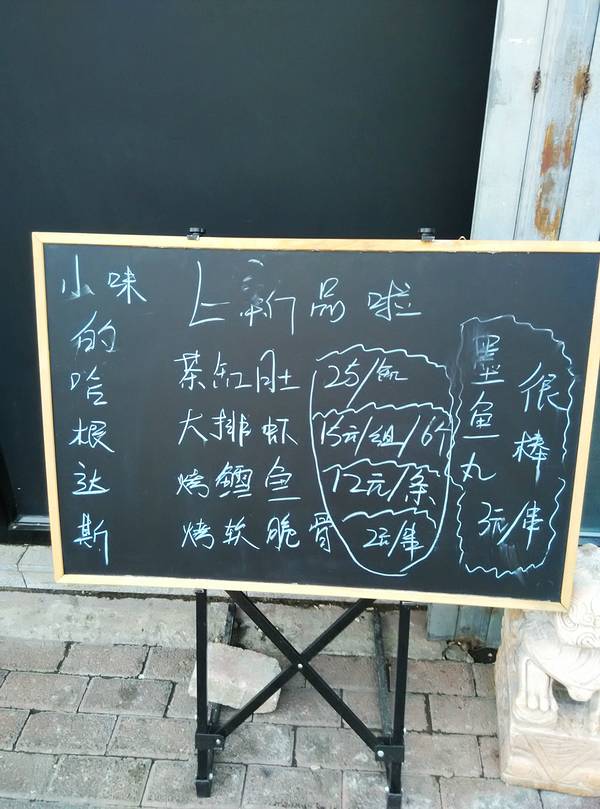 小味的哈根达斯
上新品啦
茶缸肚 25/缸
大排虾 15元/组/6个
烤鳕鱼 12元/条
烤软脆骨 2元/串
墨鱼丸
很棒
3元/串